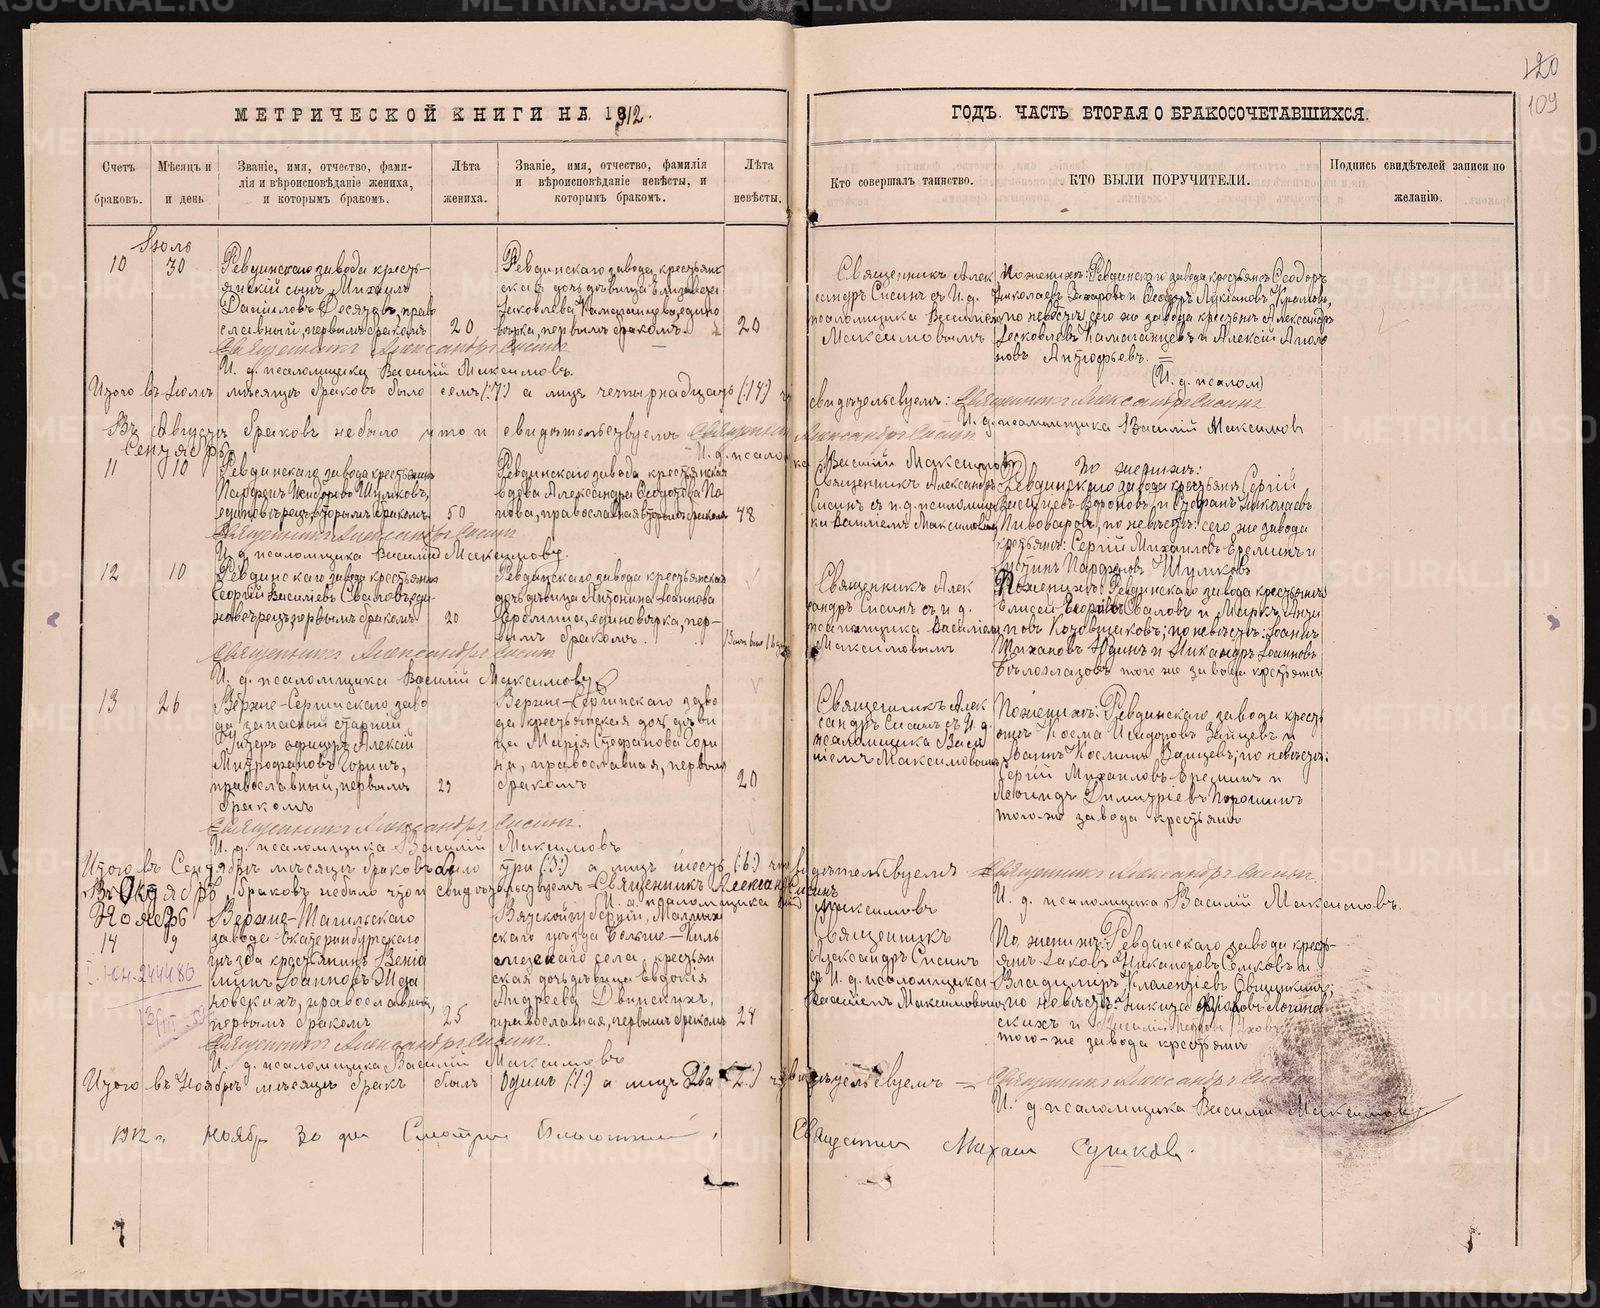 120
109
МЕТРИЧЕСКОЙ КНИГИ НА 1912.
ГОДЪ. ЧАСТЬ ВТОРАЯ О БРАКОСОЧЕТАВШИХСЯ.
Счетъ браковъ.
Мѣсяцъ и и день
Званіе, имя, отчество, фами-
лія и вѣроисповѣданіе жениха,
и которымъ бракомъ.
Лѣта жениха.
Званіе, имя, отчество, фамилія
и вѣроисповѣданіе невѣсты, и
которымъ бракомъ.
Лѣта невѣсты.
Кто совершалъ таинство.
КТО БЫЛИ ПОРУЧИТЕЛИ.
Подпись свидѣтелей записи по
желанію.
Іюль
10
30
Ревдинскаго завода кресть-
янскій сынъ Михаилъ
Даніиловъ Десятовъ, право
славный, первымъ бракомъ
20
Ревдинскаго завода крестьян
ская дочь дѣвица Елизавета
Іаковлева едино
вѣрка, первымъ бракомъ
20
Священникъ Алек
сандръ Сисинъ съ И. д.
псаломщика Василіем
Максимовымъ
По женихѣ: Ревдинскаго завода крестьяне Ѳеодоръ
Николаевъ Захаровъ и Ѳеодоръ
по невѣстѣ: сего же завода крестьяне Александръ
и Алексій
новъ
Священникъ Александръ Сисинъ
И. д. псаломщика Василій Максимовъ.
Итого въ Іюлѣ мѣсяцѣ браковъ было семь (:7:) а лицъ четырнадцать (:14:) что
свидѣтельствуемъ: Священникъ Александръ Сисинъ
(И. д. псалом)
И. д. псаломщика Василій Максимовъ
Въ Августѣ браковъ небыло что и свидѣтельствуемъ Священникъ Александръ Сисинъ
И. д. псаломщика Василій Максимовъ
Сентябрь
11
10
Ревдинскаго завода крестьянинъ
Парфенъ Исидоровъ Шумковъ,
единовѣрецъ, вторымъ бракомъ
50
Ревдинскаго завода крестьянская
вдова Александра Ѳеодотова По
пова, православная, вторымъ бракомъ
48
Священникъ Александръ
Сисинъ съ и.д. псаломщи
ка Василіемъ Максимовым
По женихѣ:
Ревдинскаго завода крестьяне Сергій
Василіевъ Вороновъ и Стефанъ Николаевъ
Пивоваровъ, по невѣстѣ: сего же завода
крестьяне: Сергій Михаиловъ Ереминъ и
Іустинъ Парфеновъ Шумковъ
Священникъ Александръ Сисинъ
И. д. псаломщика Василій Максимовъ.
12
10
Ревдинскаго завода крестьянинъ
Георгій Василіевъ Сваловъ, еди
новѣрецъ, первымъ бракомъ
20
Ревдинскаго завода крестьянская
дочь дѣвица Антонина Іоаннова
единовѣрка, пер-
вымъ бракомъ.
Священникъ Алек
сандръ Сисинъ съ и. д.
псаломщика Василіем
Максимовымъ
По женихѣ: Ревдинскаго завода крестьяне
Елисей Георгіевъ Сваловъ и Маркъ Анти
повъ Кожовщиковъ; по невѣстѣ: Іоаннъ
Тихановъ Юдинъ и Никандръ Іоанновъ
Бѣлоглазовъ того же завода крестьяне
Священникъ Александръ Сисинъ
И. д. псаломщика Василій Максимовъ
13
26
Верхне-Сергинскаго заво
да запасный старшій
унтеръ офицеръ Алексій
Митрофановъ Горинъ,
православный, первымъ
бракомъ
29
Верхне-Сергинскаго заво
да крестьянская дочь дѣви
ца Марія Стефанова Гори
на, православная, первымъ
бракомъ
20
Священникъ Алек
сандръ Сисинъ съ И. д.
псаломщика Васи
ліемъ Максимовымъ
По женихѣ: Ревдинскаго завода кресть
яне Косма Исидоровъ Зайцевъ и
Іоаннъ Косминъ Зайцевъ; по невѣстѣ:
Сергій Михаиловъ Ереминъ и
Леонидъ Димитріевъ Порошинъ
того-же завода крестьяне
Священникъ Александръ Сисинъ.
И. д. псаломщика Василій Максимовъ
Итого въ Сентябрѣ мѣсяцѣ браковъ было три (:3:) а лицъ шесть (:6:) что свидѣтельствуемъ Священникъ Александръ Сисинъ
Въ Октябрѣ браковъ небыло что и свидѣтельствуемъ Священникъ Александръ Сисинъ
И. д. псаломщика Василій Максимовъ
И. д. псаломщика Василій Максимовъ.
Ноябрь
14
9
244486
Верхне-Тагильскаго
завода Екатеринбургскаго
уѣзда крестьянинъ Веніа
минъ Іоанновъ Жда
новскихъ, православный,
первымъ бракомъ
25
Вятской губерніи, Малмыж
скаго уѣзда Больше-Киль
мезскаго села, крестьян
ская дочь дѣвица Евдокія
Андреева Двинскихъ,
православная, первымъ бракомъ
24
Священникъ
Александръ Сисинъ
съ И. д. псаломщика
Василіемъ Максимовымъ
По женихѣ: Ревдинскаго завода кресть-
яне Іаковъ Никаноровъ Семковъ и
Владиміръ
по невѣстѣ: Никита
скихъ и
того-же завода крестьяне
Священникъ Александръ Сисинъ.
И. д. псаломщика Василій Максимовъ
Итого въ Ноябрѣ мѣсяцѣ бракъ былъ одинъ (:1:) а лицъ два (:2:) что свидѣтельствуемъ — Священникъ Александръ Сисинъ
И. д. псаломщика Василій Максимовъ
1912 г. Ноября 30 дня Смотрѣлъ Благочинный, Священникъ Михаилъ Сушковъ.
METRIKI.GASO-URAL.RU